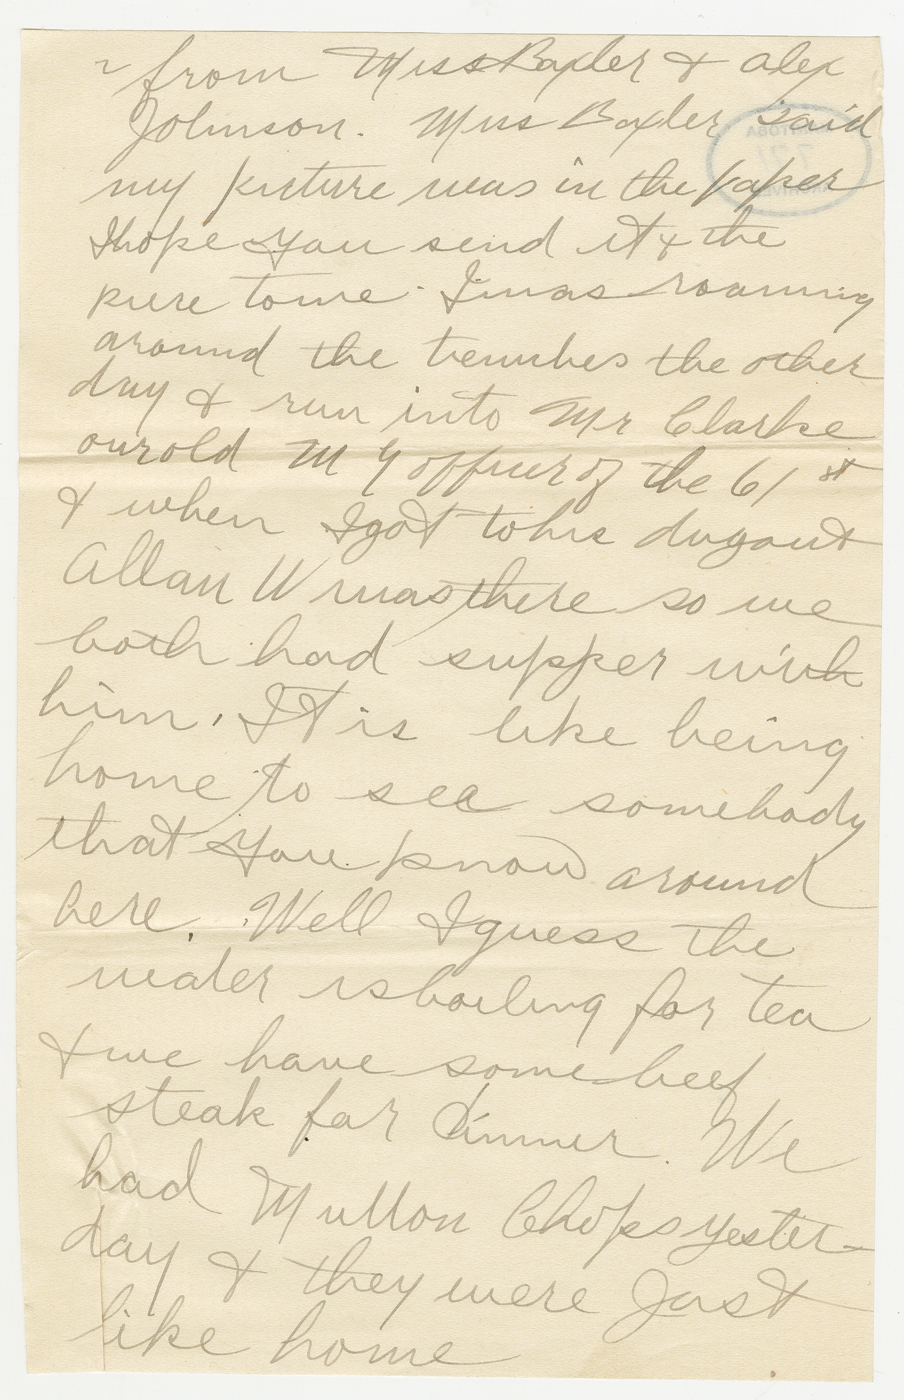 from Miss Baxler & Alex
Johnson. Miss Baxler said
my picture was in the paper
I hope you send it & the
piece to me. I was roaming
around the trenches the other
day & run into Mr Clarke
our old M G officer of the 61st
& when I got to his dugout
Allan W was there so we
both had supper with
him. It is like being
home to see somebody
that you know around
here. Well I guess the
water is boiling for tea
& we have some beef
steak for dinner. We
had Mutton Chops yester-
day & they were Just
like home